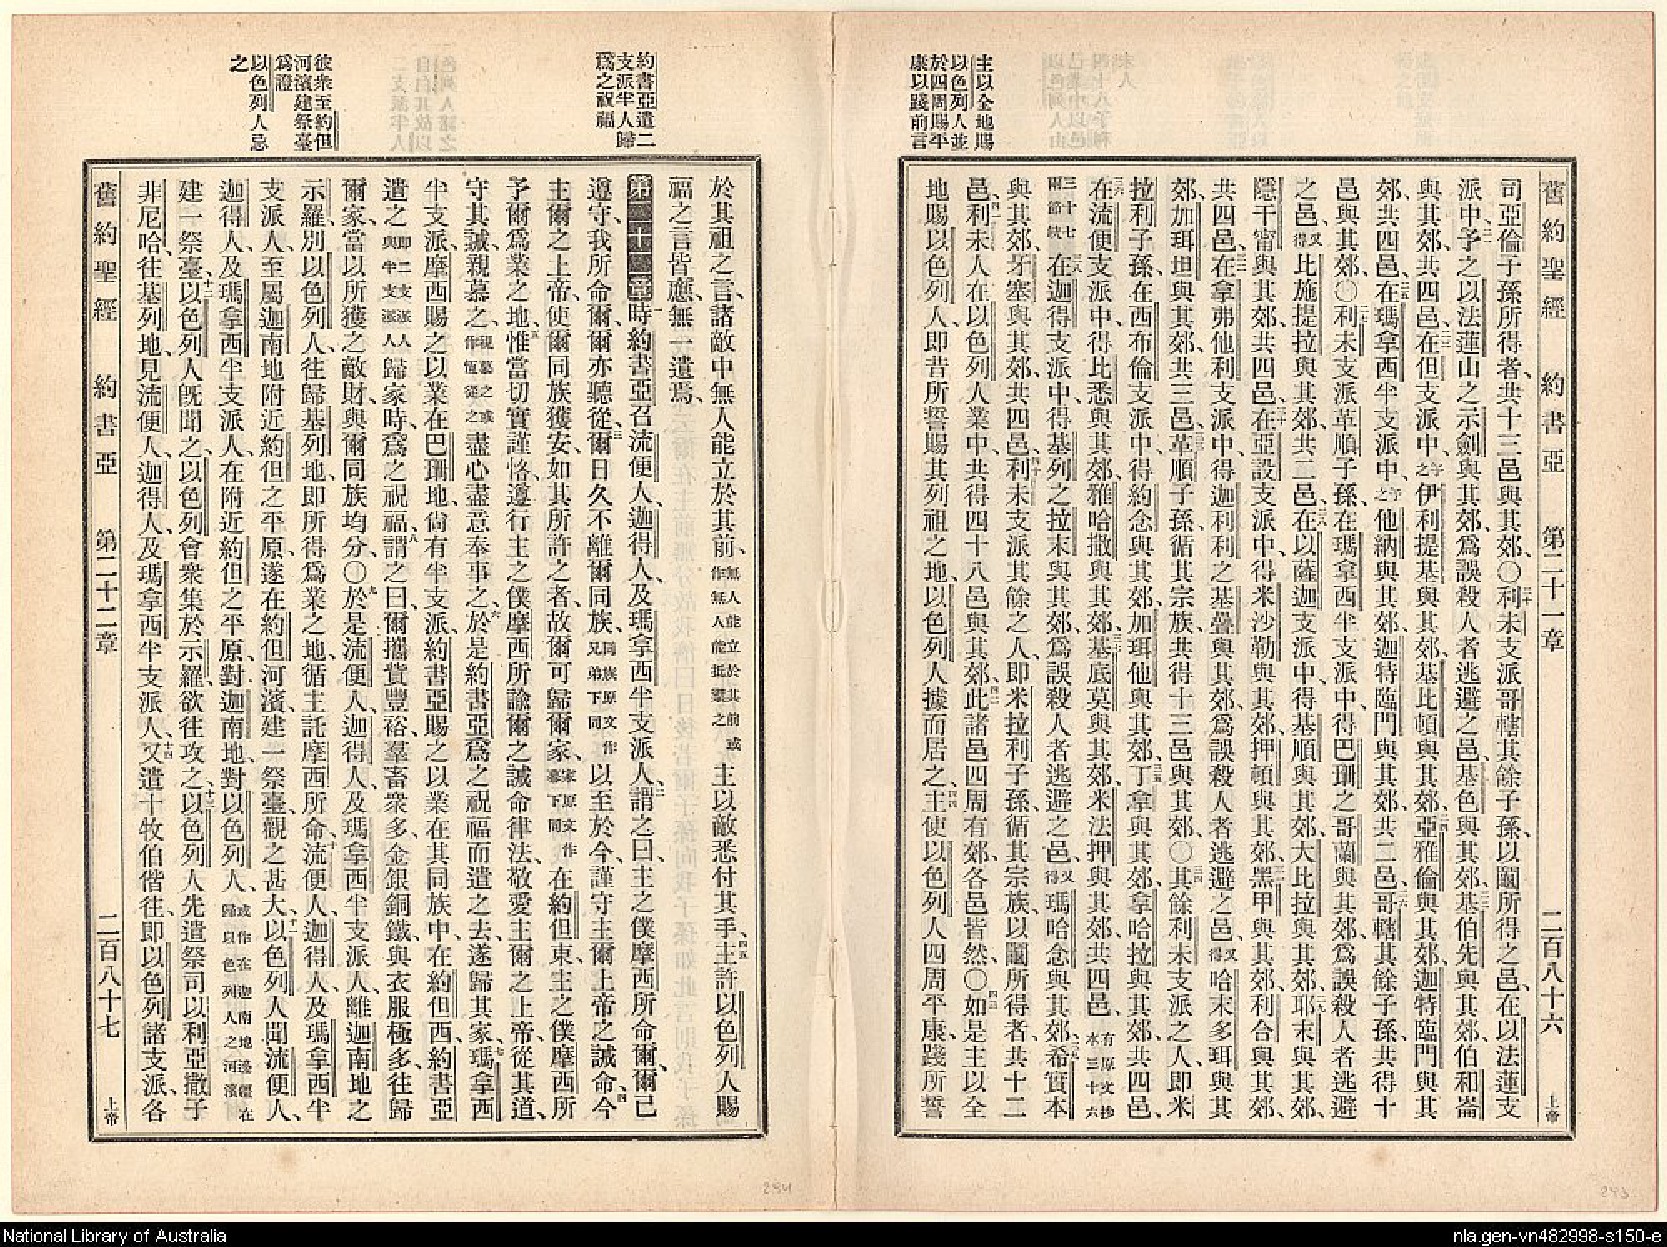 舊約聖經 約書亞 第二十一章 二百八十六 上帝
主以全地賜
以色列人並
於四周賜平
康以踐前言
司亞倫子孫所得者、共十三邑、與其郊、〇二十利未支派哥轄其餘子孫、以鬮所得之邑、在以法蓮支
派中、予之以法蓮山之示劍與其郊、爲誤殺人者逃避之邑、基色與其郊、基伯先與其郊、伯和崙
與其郊、共四邑、在但支派中、予之伊利提基與其郊、基比頓與其郊、亞雅倫與其郊、迦特臨門與其
郊、共四邑、在瑪拿西半支派中、予之他納與其郊、迦特臨門與其郊、共二邑、哥轄其餘子孫、共得十
邑與其郊、〇利未支派革順子孫、在瑪拿西半支派中、得巴珊之哥蘭與其郊、爲誤殺人者逃避
之邑、又得比施提拉與其郊、共二邑、在以薩迦支派中、得基順與其郊、大比拉與其郊、耶末與其郊、
隱干甯與其郊、共四邑、在亞設支派中、得米沙勒與其郊、押頓與其郊、黑甲與其郊、利合與其郊、
共四邑、在拿弗他利支派中、得迦利利之基疊與其郊、爲誤殺人者逃避之邑、又得哈末多珥與其
郊、加珥坦與其郊、共三邑、革順子孫、循其宗族、共得十三邑與其郊、〇其餘利未支派之人、即米
拉利子孫、在西布倫支派中、得約念與其郊、加珥他與其郊、丁拿與其郊、拿哈拉與其郊、共四邑、
在流便支派中、得比悉與其郊、雅哈撒與其郊、基底莫與其郊、米法押與其郊、共四邑、有原文抄本三十六
三十七兩節缺在迦得支派中、得基列之拉末與其郊、爲誤殺人者逃避之邑、又得瑪哈念與其郊、希實本
與其郊、牙塞與其郊、共四邑、利未支派其餘之人、即米拉利子孫、循其宗族、以鬮所得者、共十二
邑、利未人在以色列人業中、共得四十八邑與其郊、此諸邑四周有郊、各邑皆然、〇如是主以全
地賜以色列人、即昔所誓賜其列祖之地、以色列人據而居之、主使以色列人四周平康、踐所誓
約書亞遣二
支派半人歸
爲之祝福
彼衆至約但
河濱建祭臺
爲證
以色列人忌
之
於其祖之言、諸敵中無人能立於其前、無人能立於其前或作無人能抵禦之主以敵悉付其手、主許以色列人賜
福之言皆應、無一遺焉、
第二十二章時約書亞召流便人、迦得人、及瑪拿西半支派人、謂之曰、主之僕摩西所命爾、爾已
遵守、我所命爾、爾亦聽從、爾日久不離爾同族、同族原文作兄弟下同以至於今、謹守主爾上帝之誡命、今
主爾之上帝、使爾同族獲安、如其所許之者、故爾可歸爾家、家原文作幕下同在約但東、主之僕摩西所
予爾爲業之地、惟當切實謹恪、遵行主之僕摩西所諭爾之誡命律法、敬愛主爾之上帝、從其道、
守其誡、親慕之、親慕之或作恆從之盡心盡意奉事之、於是約書亞爲之祝福而遣之去、遂歸其家、瑪拿西
半支派、摩西賜之以業在巴珊地、尚有半支派、約書亞賜之以業在其同族中、在約但西、約書亞
遣之即二支派人與半支派人歸家時、爲之祝福、謂之曰、爾攜貲豐裕、羣畜衆多、金銀銅鐵、與衣服極多、往歸
爾家、當以所獲之敵財、與爾同族均分、〇於是流便人、迦得人、及瑪拿西半支派人、離迦南地之
示羅、別以色列人、往歸基列地、即所得爲業之地、循主託摩西所命、流便人、迦得人、及瑪拿西半
支派人、至屬迦南地附近約但之平原、遂在約但河濱、建一祭臺、觀之甚大、以色列人聞流便人、
迦得人、及瑪拿西半支派人、在附近約但之平原、對迦南地、對以色列人、
建一祭臺、以色列人既聞之、以色列會衆集於示羅、欲往攻之、以色列人先遣祭司以利亞撒子
非尼哈、往基列地、見流便人、迦得人、及瑪拿西半支派人、又遣十牧伯偕往、即以色列諸支派、各
舊約聖經 約書亞 第二十二章 二百八十七 上帝
294
293
National Library of Australia
nla.gen-vn482998-s150-e